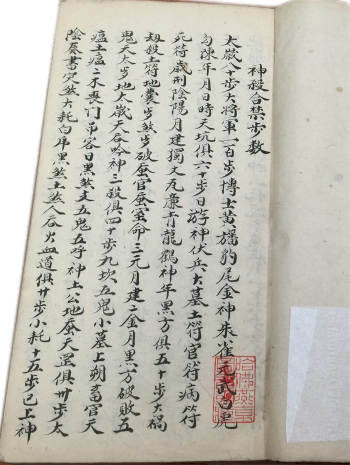 神殺合禁步數
大歲八十步大將軍一百步博士黃旛豹尾金神朱雀元武白虎
勾陳年月日時天坑俱六十步日游神伏兵大墓土符官符病符
死符歲刑陰陽月建獨火瓦廉青龍鶴神年黑方俱五十步大禍
劫殺土符地農步煞步破蚕官蚕室命三元月建二金月黑方破敗五
鬼天太歲地太歲天后吟神三殺俱四十步九坎五鬼小墓上朔畜官天
瘟土瘟二木喪門吊客日黑煞支五鬼五呼神土公地蚕天罡俱卅步太
陰飛書灾煞大耗白席黑煞土煞入后火血道俱廿步小耗十五步已上神